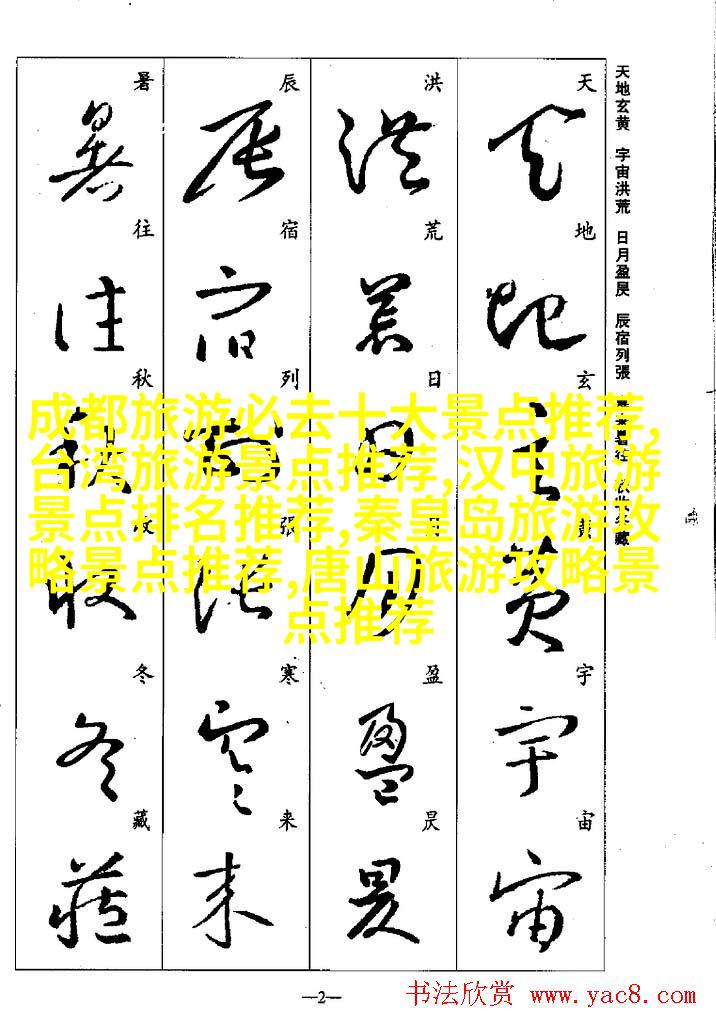 天地玄黄 宇宙洪荒 日月盈昃 辰宿列張 暑往 秋收冬藏
天地玄黄宇宙
洪荒日月盈昃
辰宿列張寒来
暑往秋收冬藏
成都旅游必去十大景点推荐,
台湾旅游景点推荐,汉中旅游
景点排名推荐,秦皇岛旅游攻
略景点推荐,唐山旅游攻略景
点推荐
—2—
书法欣赏 www.yac8.com